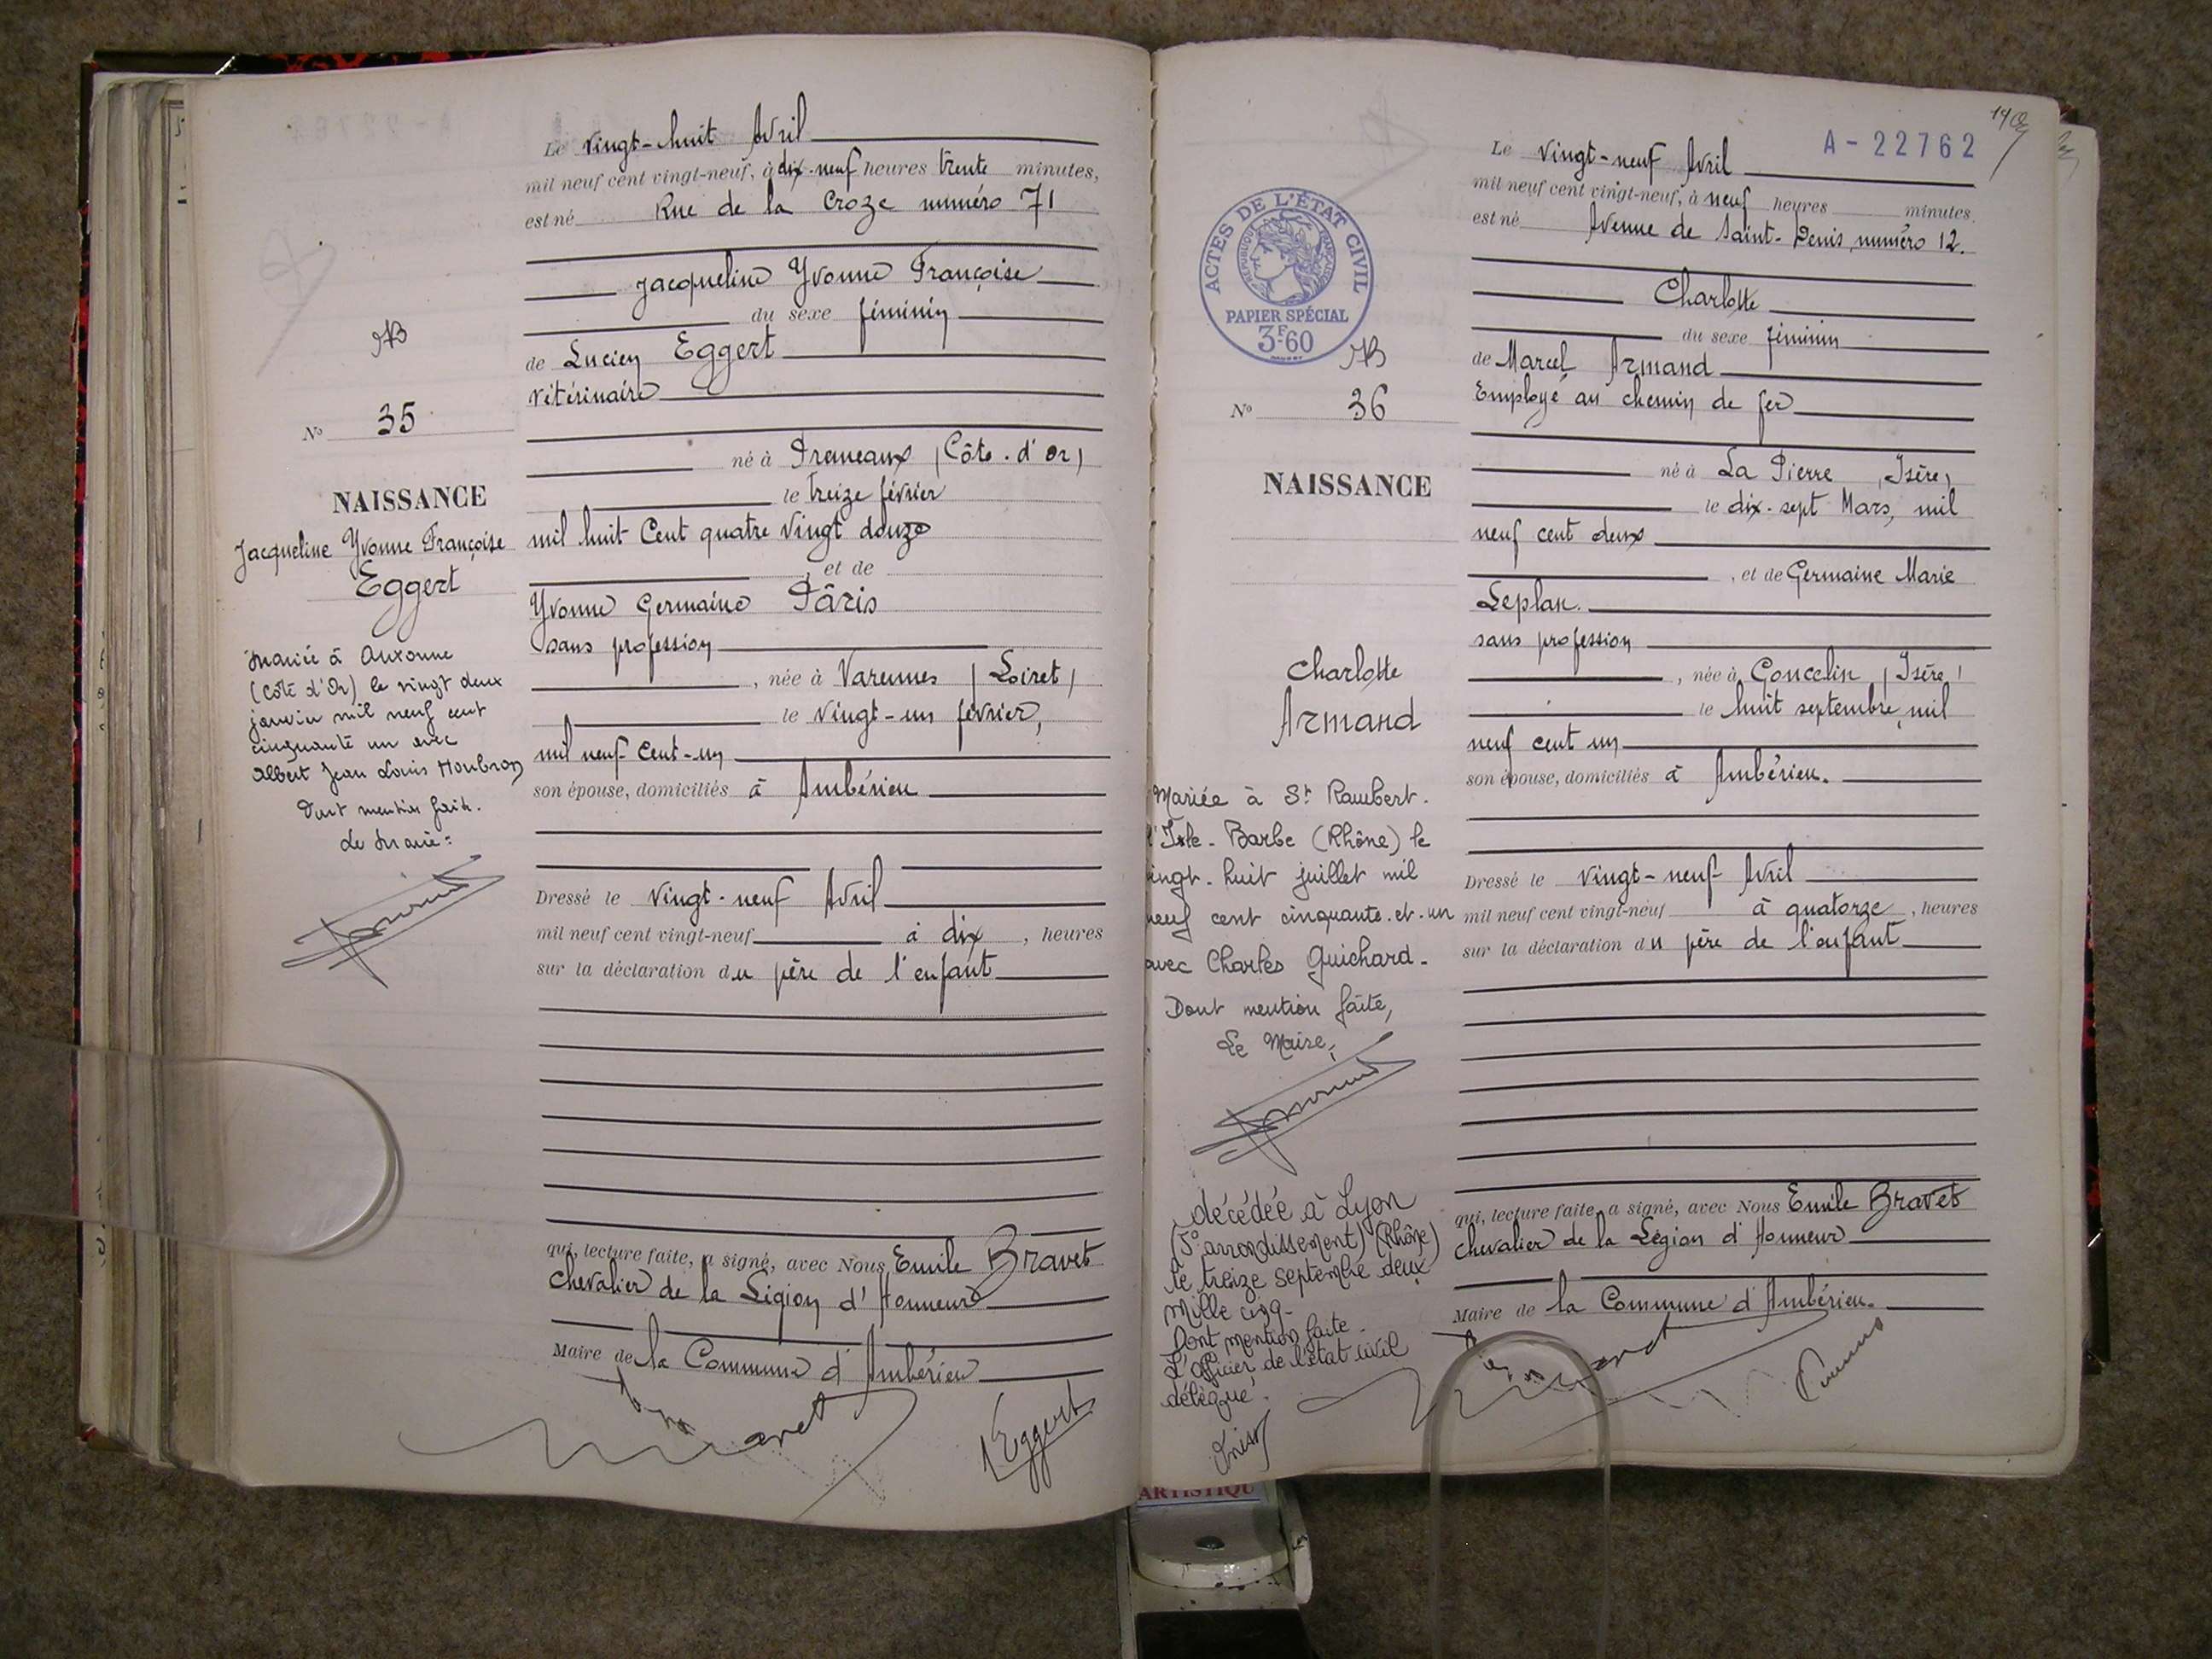 Le vingt-huit Avril
mil neuf cent vingt-neuf, à dix-neuf heures trente minutes,
est né Rue de la Croze numéro 71
Jacqueline Yvonne Françoise
du sexe féminin
de Lucien Eggert
vétérinaire
né à (Côte-d'Or)
le treize février
mil huit Cent quatre vingt douze
et de
Yvonne Germaine Pâris
sans profession
, née à Varennes (Loiret)
le vingt-un février,
mil neuf Cent-un
son épouse, domiciliés à Ambérieu
Dressé le vingt-neuf Avril
mil neuf cent vingt-neuf à dix, heures
sur la déclaration du père de l'enfant
qui, lecture faite, a signé, avec Nous Emile Bravet
Chevalier de la Légion d'Honneur
Maire de la Commune d'Ambérieu
Eggert
N° 35
NAISSANCE
Jacqueline Yvonne Françoise
Eggert
Mariée à Auxonne
(Côte d'Or) le vingt deux
janvier mil neuf cent
cinquante un avec
Albert Jean Louis Monbron
Dont mention faite.
Le Maire:
140
A-22762
Le vingt-neuf Avril
mil neuf cent vingt-neuf, à neuf heures minutes,
est né Avenue de Saint-Denis, numéro 12.
Charlotte
du sexe féminin
de Marcel Armand
Employé au chemin de fer
né à La Pierre (Isère)
le dix-sept Mars, mil
neuf cent deux
, et de Germaine Marie
Leplan.
sans profession
, née à Goncelin (Isère)
le huit septembre, mil
neuf cent un
son épouse, domiciliés à Ambérieu.
Dressé le vingt-neuf Avril
mil neuf cent vingt-neuf à quatorze, heures
sur la déclaration du père de l'enfant
qui, lecture faite, a signé, avec Nous Emile Bravet
Chevalier de la Légion d'Honneur
Maire de la Commune d'Ambérieu.
ACTES DE L'ÉTAT CIVIL
RÉPUBLIQUE FRANÇAISE
PAPIER SPÉCIAL
3F60
N° 36
NAISSANCE
Charlotte
Armand
Mariée à St Rambert.
l'Isle-Barbe (Rhône) le
vingt-huit juillet mil
neuf cent cinquante-et-un
avec Charles Guichard.
Dont mention faite,
Le Maire,
décédée à Lyon
(5° arrondissement) (Rhône)
le treize septembre deux
mille cinq.
Dont mention faite.
L'officier de l'état civil
délégué.
ARTISTIQU